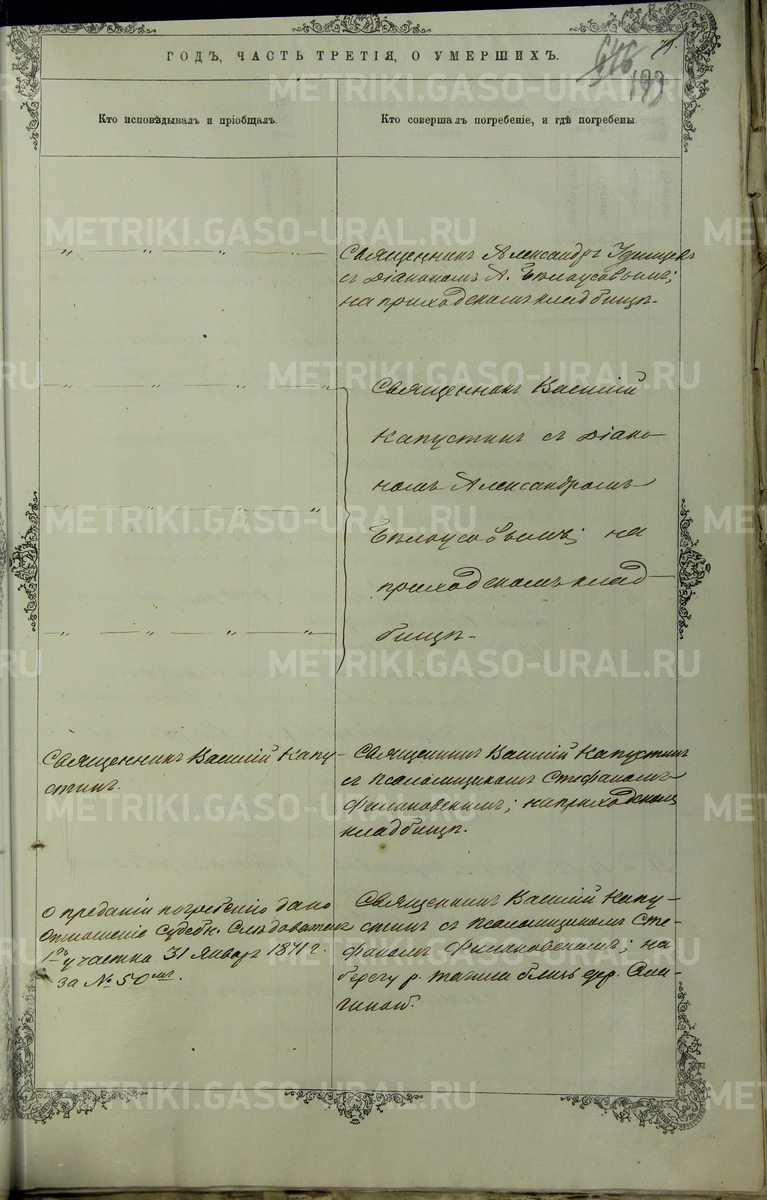 ГОДЪ, ЧАСТЬ ТРЕТІЯ, О УМЕРШИХЪ.
193
Кто исповѣдывалъ и пріобщалъ.
Кто совершалъ погребеніе, и гдѣ погребены.
Священникъ Александръ
съ Діакономъ А. Бѣлоусовымъ;
на приходскомъ кладбищѣ.
Священникъ Василій
Капустинъ съ Діако-
номъ Александромъ
Бѣлоусовымъ; на
приходскомъ клад-
бищѣ.
Священникъ Василій Капу-
стинъ.
Священникъ Василій Капустинъ
съ Псаломщикомъ Стефаномъ
на приходскомъ
кладбищѣ.
О преданіи погребенію дано
отношеніе Судебн. Слѣдователя
1го участка 31 Января 1871 г.
за № 50мъ.
Священникъ Василій Капу-
стинъ съ Псаломщикомъ Сте-
фаномъ на
берегу р. Тагила близь дер.
METRIKI.GASO-URAL.RU